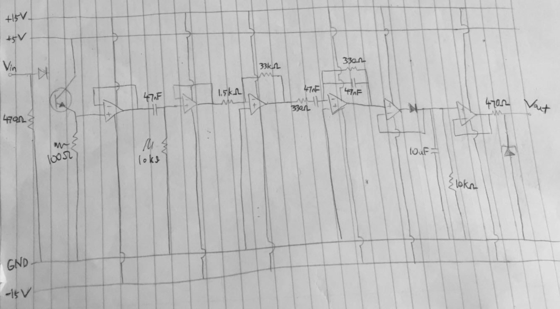 +15V
+5V
Vin
470Ω
100Ω
47nF
10k
1.5kΩ
33kΩ
330Ω
47nF
330Ω
47nF
10uF
10kΩ
470Ω
Vout
GND
-15V